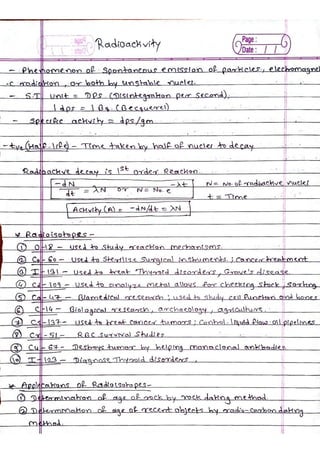 Radioactivity
Page :
Date : / /
- Phenomenon of spontaneous emission of particles, electromagnet
-c radiation, or both by unstable nuclei.
- S.I unit = DPS (Disintegration per second).
1 dps = 1 Bq (Becquerel)
- Specific activity = dps/gm
(Half life) - Time taken by half of nuclei to decay
Radioactive decay is 1st order Reaction.
-dN/dt = λN or N = No e -λt
N = No. of radioactive nuclei
t = Time
Activity (A) = -dN/dt = λN
Radioisotopes -
① O-18 - used to study reaction mechanisms.
② Co-60 - used to sterilise surgical instruments ; cancer treatment
③ I-131 - used to treat Thyroid disorders, Grave's disease.
④ Cd-109 - used to analyze metal alloys for checking stock, sorting
⑤ Ca-47 - Biomedical research ; used to study cell function and bones
⑥ C-14 - Biological research, archaeology, agriculture.
⑦ Cs-137 - used to treat cancer tumors ; control liquid flow oil pipelines
⑧ Cr-51 - RBC survival studies
⑨ Cu-67 - Destroys tumor by helping monoclonal antibodies
⑩ I-123 - Diagnose Thyroid disorders,
Applications of Radioisotopes -
① Determination of age of rock by rock dating method.
② Determination of age of recent objects by radio-carbon dating
method.